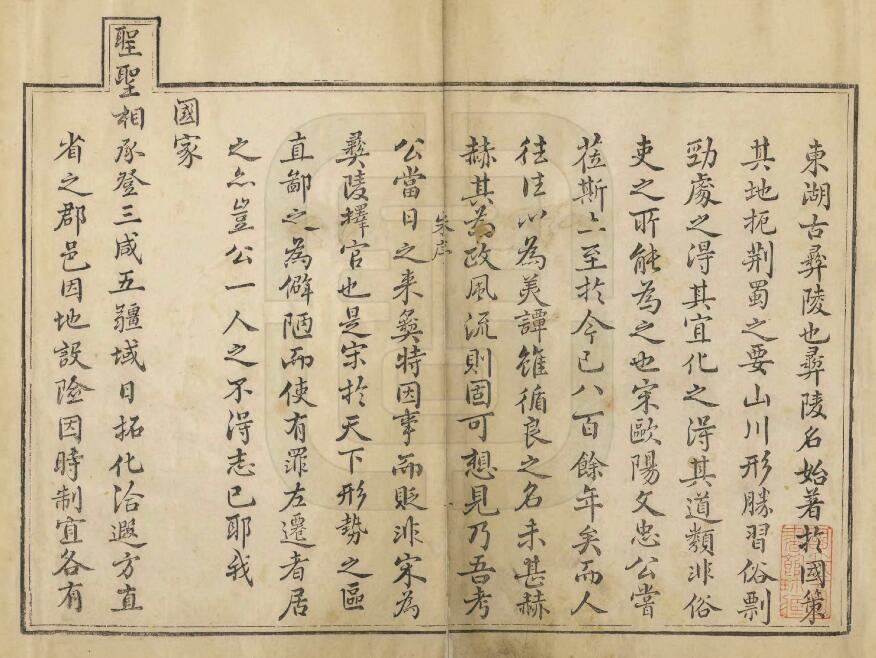 東湖古彝陵也彝陵名始著於國策
其地扼荆蜀之要山川形勝習俗剽
勁處之得其宜化之得其道類非俗
吏之所能為之也宋歐陽文忠公嘗
莅斯土至於今已八百餘年矣而人
往往以為美譚雖循良之名未甚赫
赫其為政風流則固可想見乃吾考
朱序
公當日之来彝特因事而貶非宋為
彝陵擇官也是宋於天下形勢之區
直鄙之為僻陋而使有罪左遷者居
之亦豈公一人之不得志已耶我
國家
聖聖相承登三咸五疆域日拓化洽遐方直
省之郡邑因地設險因時制宜各有